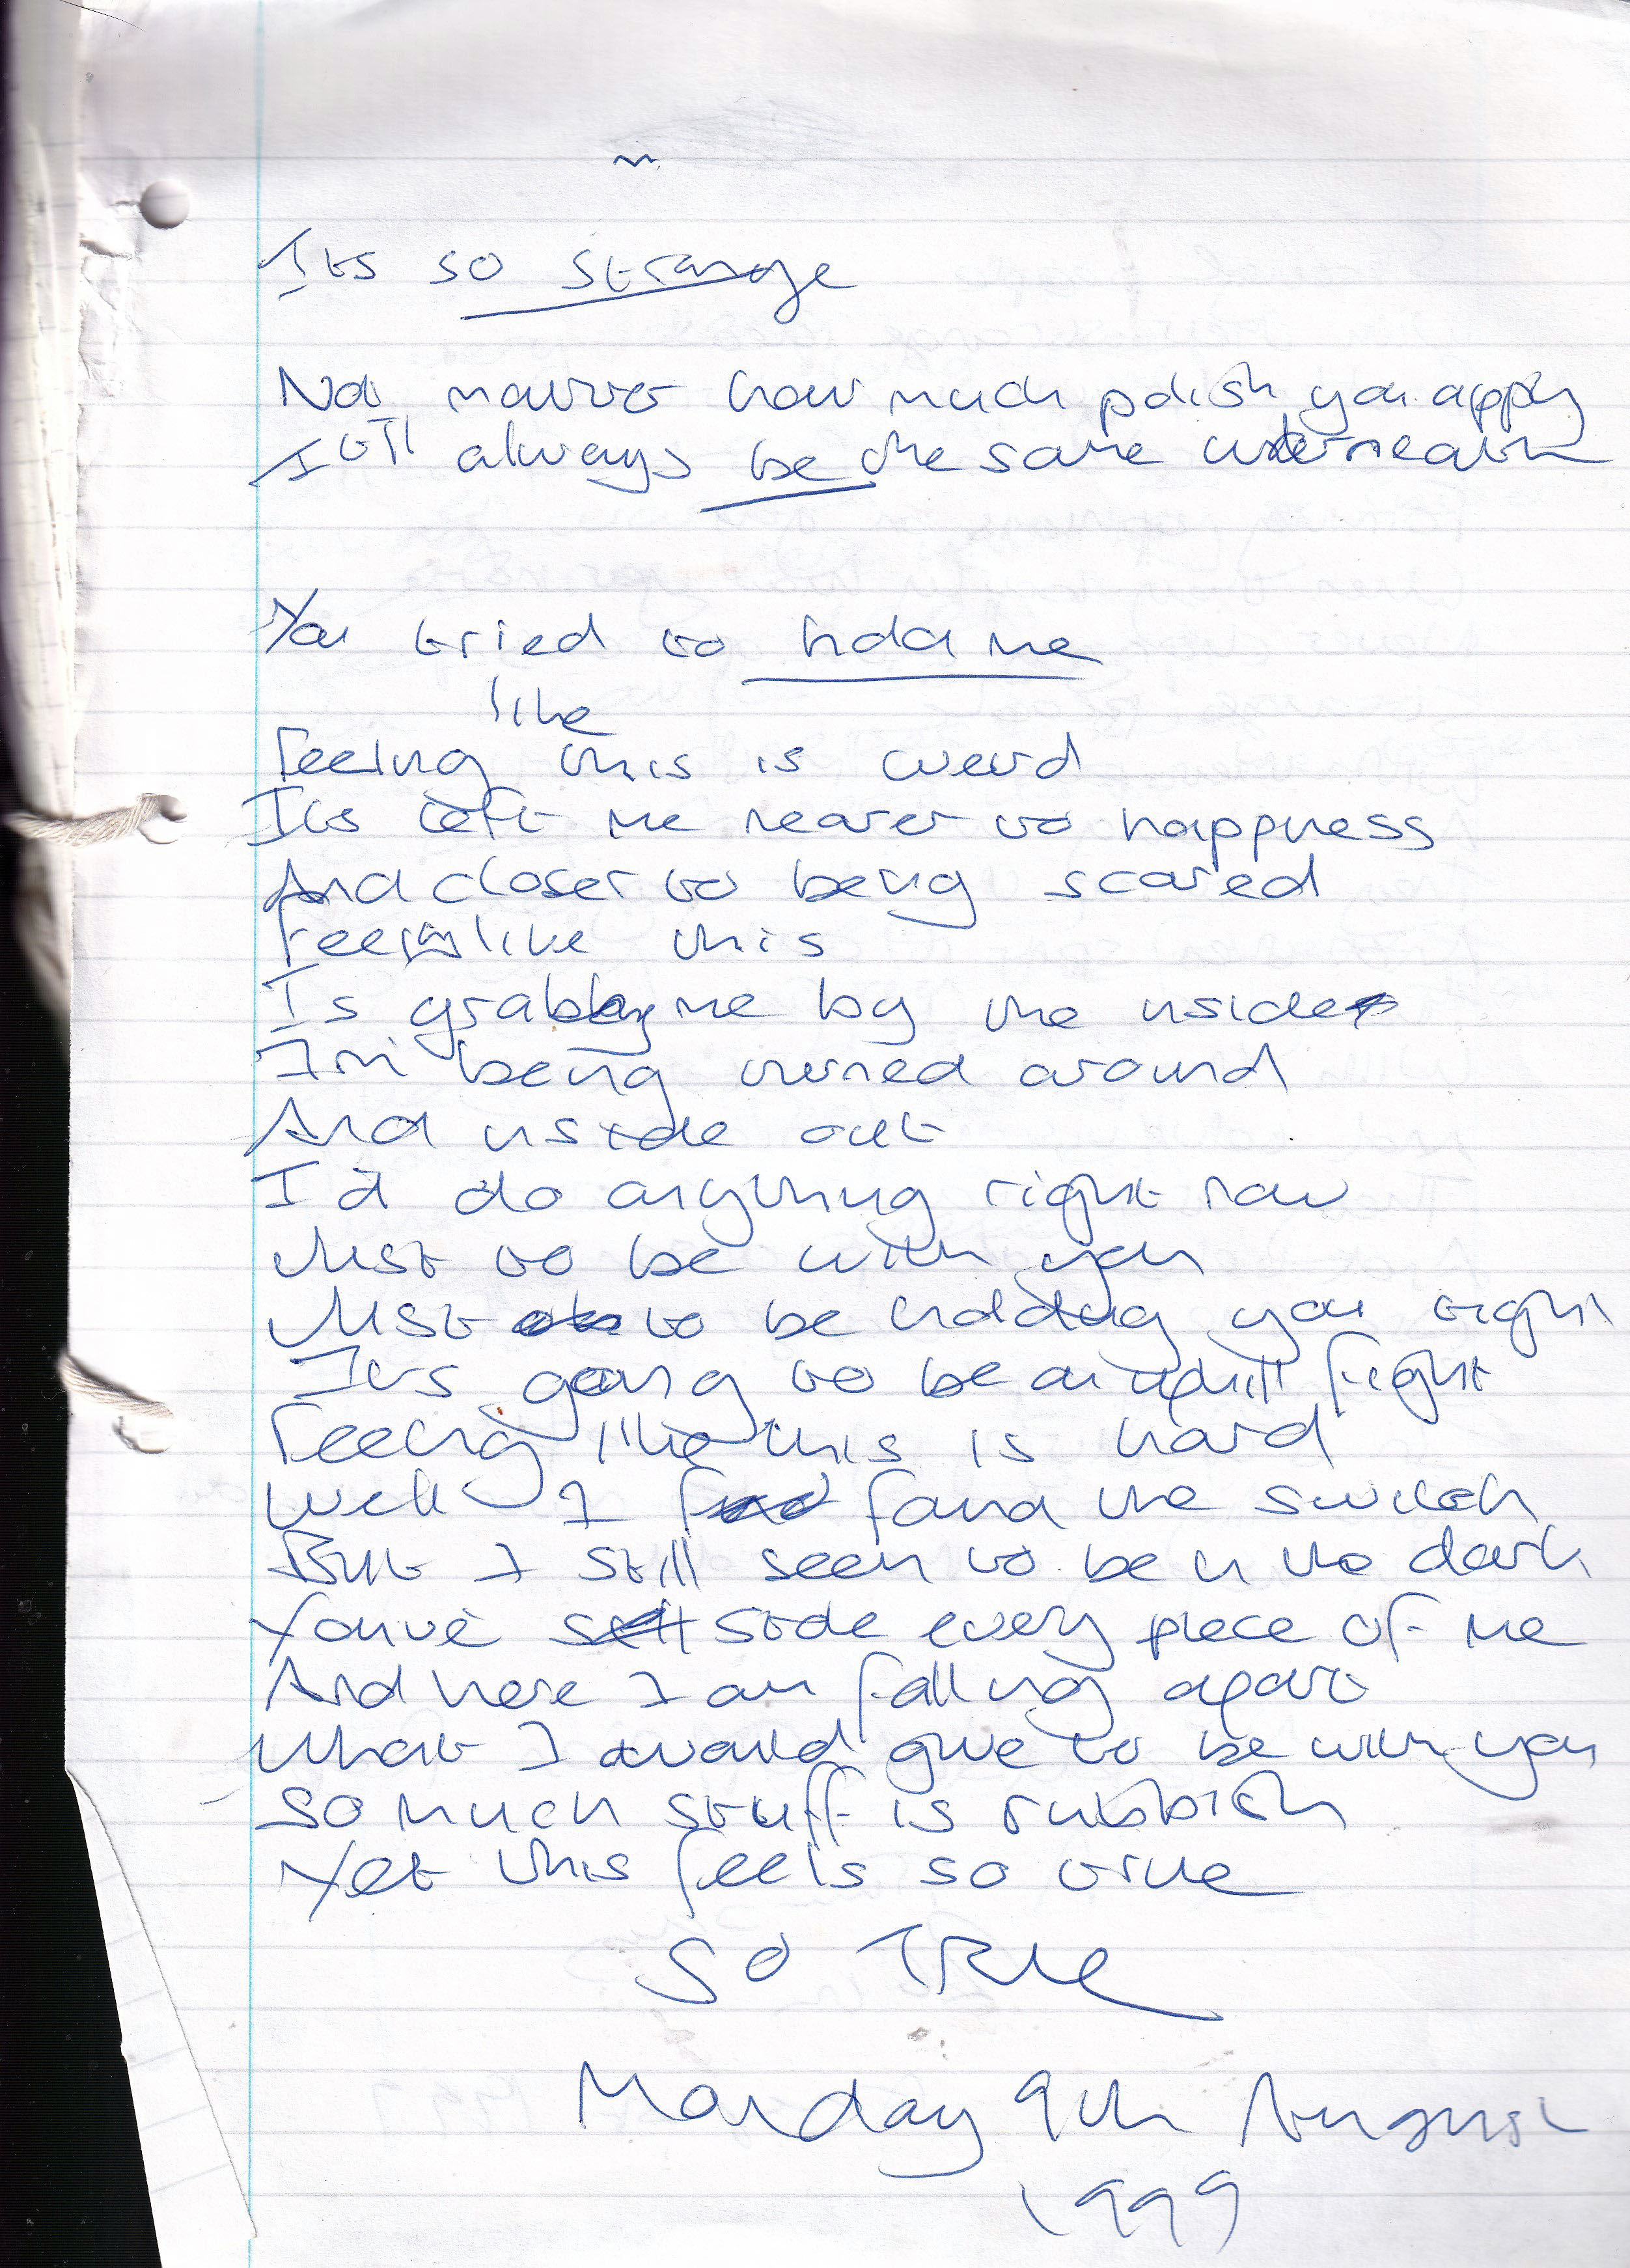 Its so strange
No matter how much polish you apply
It'll always be the same underneath
You tried to hold me
like
Feeling this is weird
Its left me nearer to happiness
And closer to being scared
Feeling like this
Is grabbing me by the insides
I'm being turned around
And inside out
I'd do anything right now
Just to be with you
Just to be holding you tight
Its going to be an uphill fight
Feeling like this is hard
Well I found the switch
But I still seem to be in the dark
You've stole every piece of me
And here I am falling apart
What I would give to be with you
So much stuff is rubbish
Yet this feels so true
So TRUE
Monday 9th August
1999